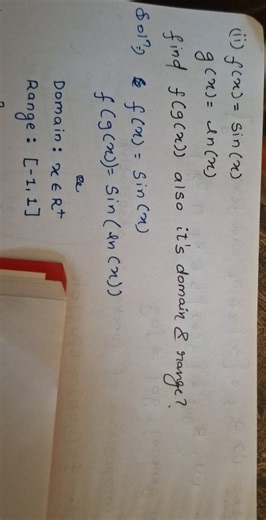 (ii) f(x) = Sin(x)
g(x) = ln(x)
find f(g(x)) also it's domain & range?
Sol?:) f(x) = Sin(x)
f(g(x)) = Sin(ln(x))
Domain : x ∈ R⁺
Range : [-1,1]